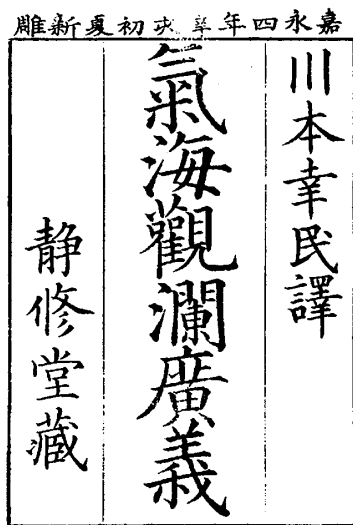 嘉永四年辛亥初夏新雕
川本幸民譯
氣海觀瀾廣義
静修堂藏